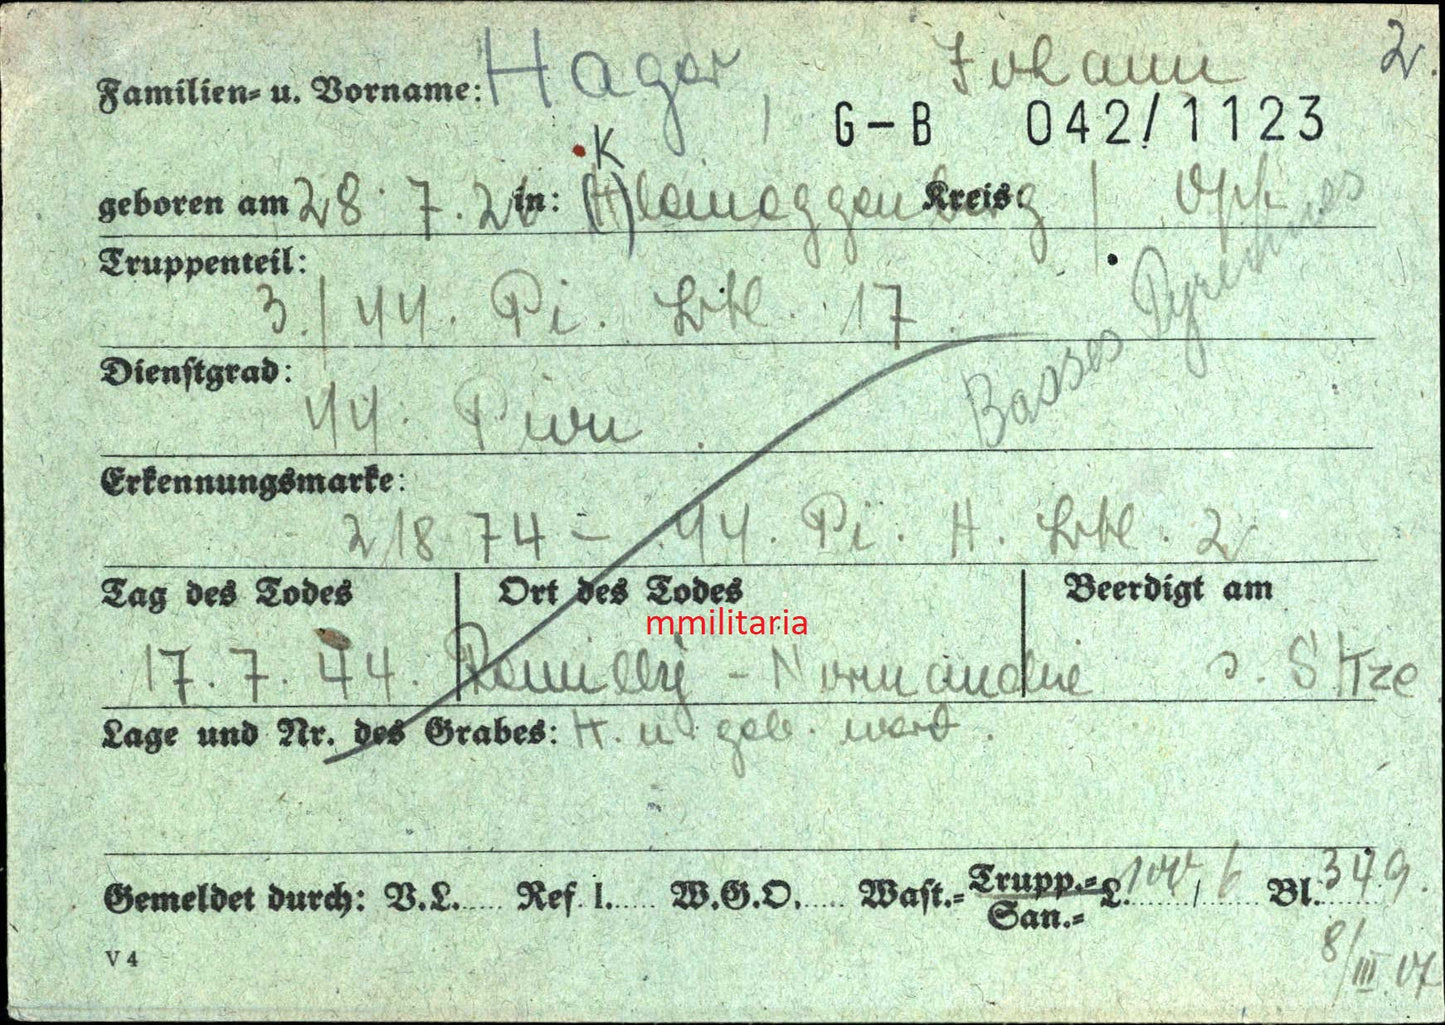 Familien- u. Vorname: Hager, Johann 2.
G-B 042/1123
K
geboren am 28. 7. 26 in: (H)leineggenberg Kreis
Truppenteil:
3./44. Pi. Btl. 17.
Basses Pyrennees
Dienstgrad:
44. Pion.
Erkennungsmarke:
21874 - 44. Pi. H. Btl. 2
Tag des Todes Ort des Todes Beerdigt am
mmilitaria
17. 7. 44. Remilly - Normandie
Lage und Nr. des Grabes: H. u. geb. word.
Gemeldet durch: V.L..... Ref. 1..... W.G.O..... Wast.- Trupp.- San.- L. / 6 Bl. 349.
8/III
V 4